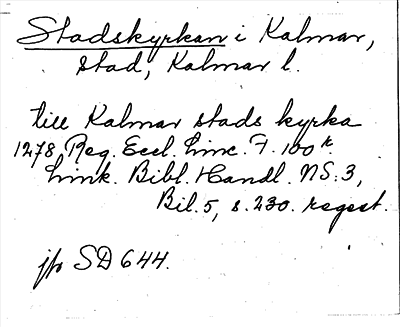 Stadskyrkan i Kalmar,
stad, Kalmar l.
till Kalmar stads kyrka
1278, Reg. Eccl. Linc. F. 100 r.
Link. Bibl. Handl. NS. 3,
Bil. 5, s. 230. regest.
jfr SD 644.